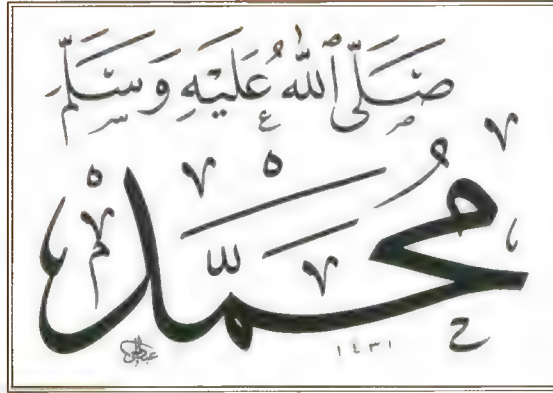 صَلَّى اللّٰه عَلَيْهِ وَسَلَّمَ
مُحَمَّد
١٤٣١